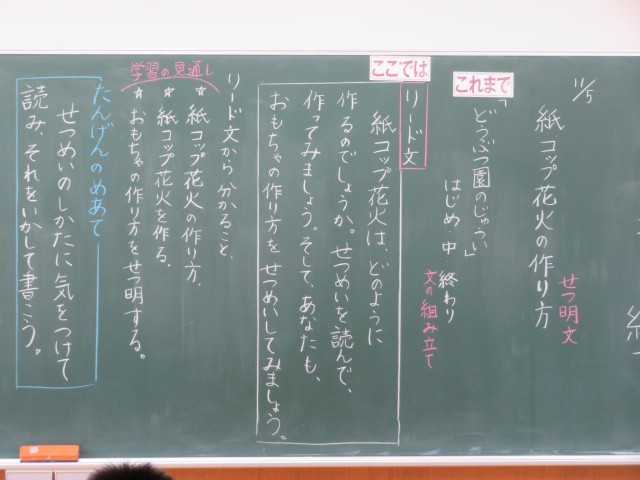 11/5
紙コップ花火の作り方
せつ明文
これまで
「どうぶつ園のじゅうい」
はじめ 中 終わり
文の組み立て
ここでは
リード文
紙コップ花火は、どのように
作るのでしょうか。せつめいを読んで、
作ってみましょう。そして、あなたも、
おもちゃの作り方をせつめいしてみましょう。
リード文から分かること、
学習の見通し
*紙コップ花火の作り方、
*紙コップ花火を作る。
*おもちゃの作り方をせつ明する。
たんげんのめあて
せつめいのしかたに気をつけて
読み、それをいかして書こう。